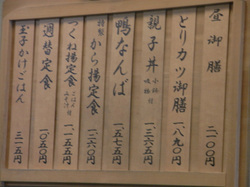 昼御膳 二一〇〇円
とりカツ御膳 一八九〇円
親子丼 小鉢付 味噌 一三六五円
鴨なんば 一五七五円
特製 から揚定食 一一五五円
つくね揚定食 ごはん みそ汁付 一一五五円
週替定食 一〇五〇円
玉子かけごはん 三一五円